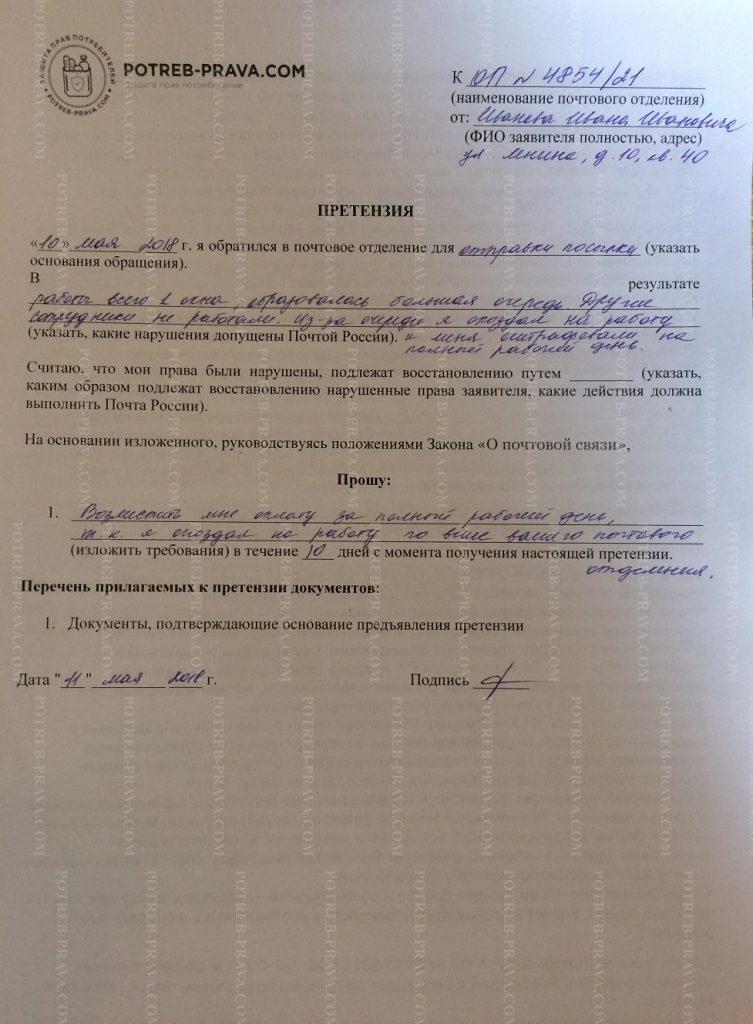 ЗАЩИТА ПРАВ ПОТРЕБИТЕЛЕЙ
POTREB-PRAVA.COM
POTREB-PRAVA.COM
защита прав потребителей
К ОП № 4854/21
(наименование почтового отделения)
от: Иванова Ивана Ивановича
(ФИО заявителя полностью, адрес)
ул Ленина, д. 10, кв. 40
ПРЕТЕНЗИЯ
«10» мая 2018 г. я обратился в почтовое отделение для отправки посылки (указать
основания обращения).
В результате
работы всего 1 окна, образовалась большая очередь. Другие
сотрудники не работали. Из-за очереди я опоздал на работу
(указать, какие нарушения допущены Почтой России). и меня оштрафовали на
полный рабочий день.
Считаю, что мои права были нарушены, подлежат восстановлению путем ________ (указать,
каким образом подлежат восстановлению нарушенные права заявителя, какие действия должна
выполнить Почта России).
На основании изложенного, руководствуясь положениями Закона «О почтовой связи»,
Прошу:
1. Возместить мне оплату за полный рабочий день,
т.к. я опоздал на работу по вине вашего почтового
(изложить требования) в течение 10 дней с момента получения настоящей претензии.
отделения.
Перечень прилагаемых к претензии документов:
1. Документы, подтверждающие основание предъявления претензии
Дата "11" мая 2018 г. Подпись